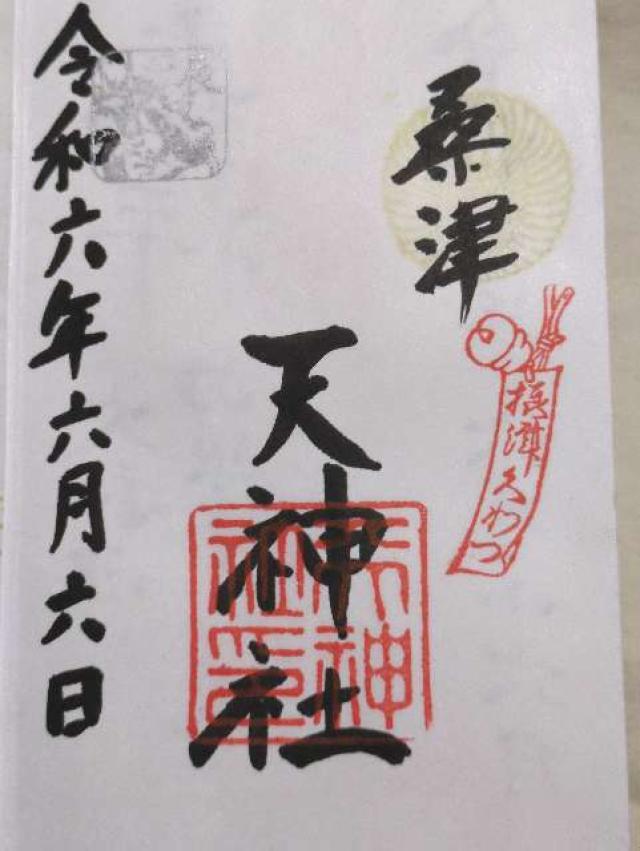 桑津
天神社
摂津くわつ
天神社印
令和六年六月六日